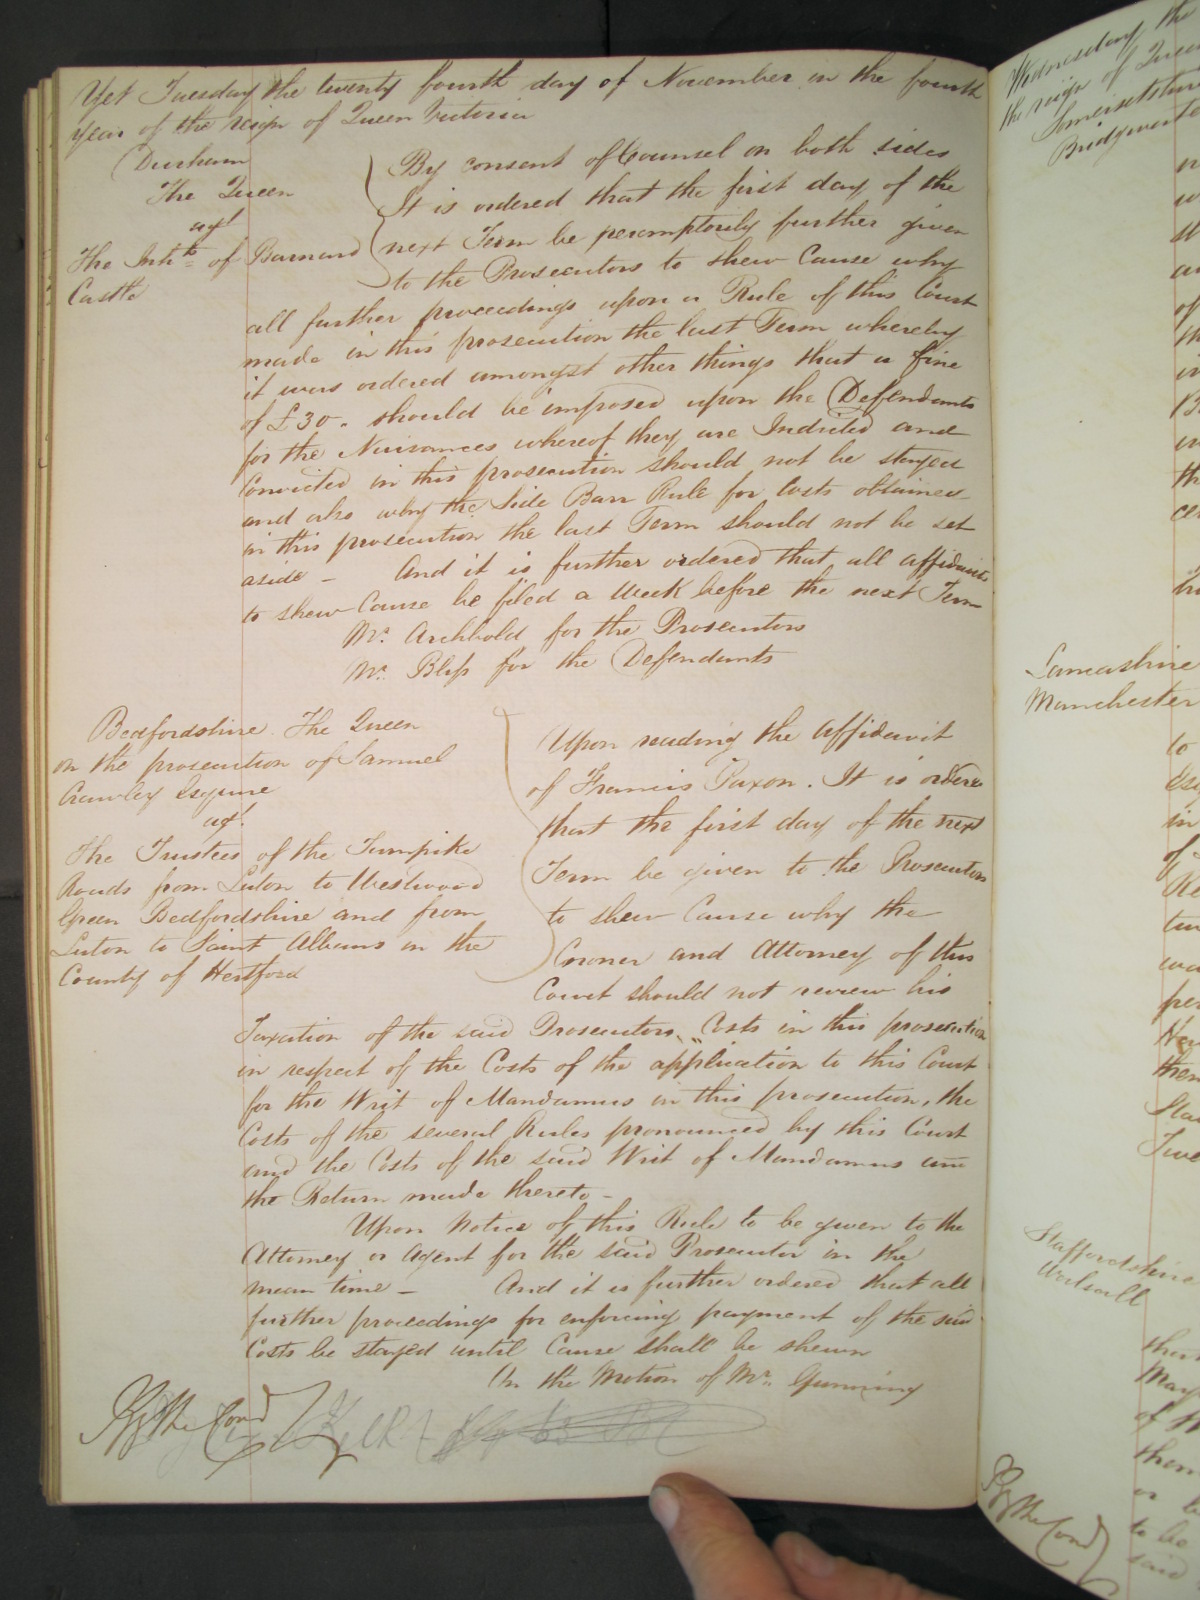 Yet Tuesday the twenty fourth day of November in the fourth
year of the reign of Queen Victoria
Durham
The Queen
agt
The Inhts of Barnard
Castle
By consent of Counsel on both sides
It is ordered that the first day of the
next Term be peremptorily further given
to the Prosecutors to shew Cause why
all further proceedings upon a Rule of this Court
made in this prosecution the last Term whereby
it was ordered amongst other things that a fine
of £30. should be imposed upon the Defendants
for the Nuisances whereof they are Indicted and
Convicted in this prosecution should not be stayed
and also why the Side Barr Rule for Costs obtained
in this prosecution the last Term should not be set
aside – And it is further ordered that all affidavits
to shew Cause be filed a Week before the next Term
Mr. Archbold for the Prosecutors
Mr. Bliss for the Defendants
Bedfordshire The Queen
on the prosecution of Samuel
Crawley Esquire
agt.
The Trustees of the Turnpike
Roads from Luton to Westwood
Green Bedfordshire and from
Luton to Saint Albans in the
County of Hertford
Upon reading the affidavit
of Francis Paxon. It is ordered
that the first day of the next
Term be given to the Prosecutor
to shew Cause why the
Coroner and Attorney of this
Court should not review his
Taxation of the said Prosecutors Costs in this prosecution
in respect of the Costs of the application to this Court
for the Writ of Mandamus in this prosecution, the
Costs of the several Rules pronounced by this Court
and the Costs of the said Writ of Mandamus and
the Return made thereto –
Upon Notice of this Rule to be given to the
Attorney or Agent for the said Prosecutor in the
mean time – And it is further ordered that all
further proceedings for enforcing payment of the said
Costs be stayed until Cause shall be shewn
On the Motion of Mr. Gunning
By the Court
Wednesday the
the reign of Queen
Somersetshire
Bridgwater
Lancashire
Manchester
Staffordshire
Walsall
By the Court